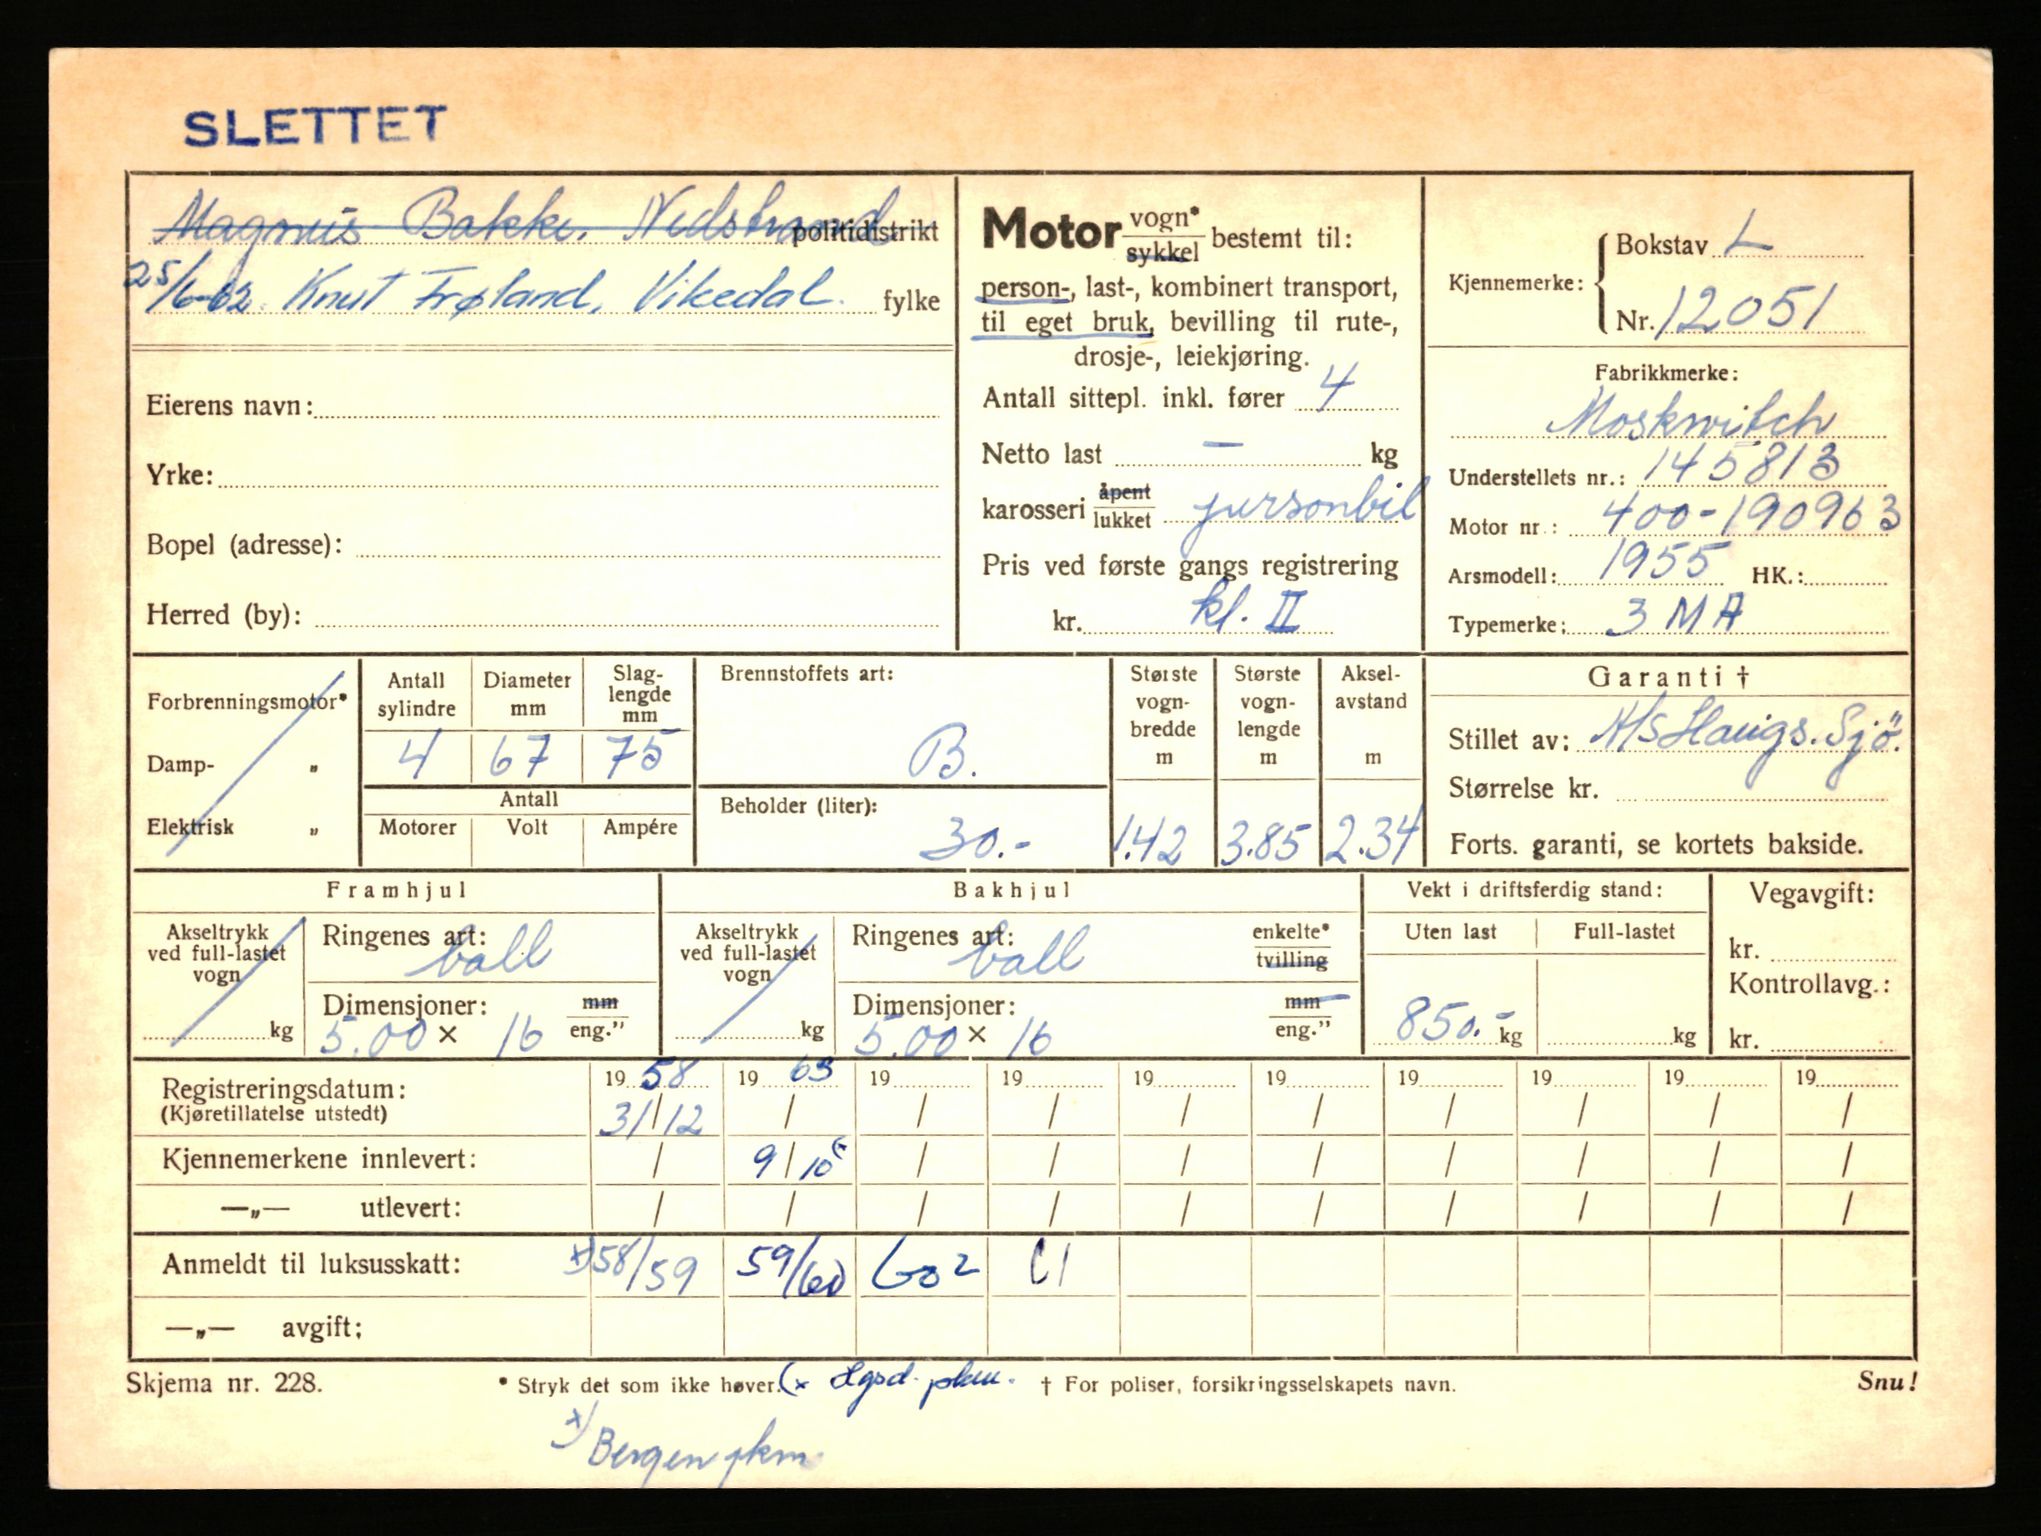 SLETTET
Magnus Bakke, Nedstrand politidistrikt
25/6-62. Knut Frøland, Vikedal. fylke
Eierens navn:
Yrke:
Bopel (adresse):
Herred (by):
Motor vogn* sykkel bestemt til:
person-, last-, kombinert transport,
til eget bruk, bevilling til rute-,
drosje-, leiekjøring.
Antall sittepl. inkl. fører 4
Netto last — kg
karosseri åpent lukket personbil
Pris ved første gangs registrering
kr. kl. II
Kjennemerke: Bokstav L
Nr. 12051
Fabrikkmerke:
Moskwitch
Understellets nr.: 145813
Motor nr.: 400-190963
Arsmodell: 1955 HK.:
Typemerke: 3 MA
Forbrenningsmotor*
Damp- „
Elektrisk „
Antall sylindre Diameter mm Slag-lengde mm
4 67 75
Antall
Motorer Volt Ampére
Brennstoffets art:
B.
Beholder (liter):
30.-
Største vogn-bredde m Største vogn-lengde m Aksel-avstand m
1.42 3.85 2.34
Garanti †
Stillet av: A/S Haugs. Sjö.
Størrelse kr.
Forts. garanti, se kortets bakside.
Framhjul
Akseltrykk ved full-lastet vogn kg
Ringenes art: ball
Dimensjoner: mm
5.00 × 16 eng.”
Bakhjul
Akseltrykk ved full-lastet vogn kg
Ringenes art: ball enkelte* tvilling
Dimensjoner: mm
5.00 × 16 eng.”
Vekt i driftsferdig stand:
Uten last Full-lastet
850.- kg kg
Vegavgift:
kr.
Kontrollavg.:
kr.
Registreringsdatum: 19 58 19 63 19 19 19 19 19 19 19 19
(Kjøretillatelse utstedt) 31/12 / / / / / / / / /
Kjennemerkene innlevert: / 9/10 / / / / / / / /
—„— utlevert: / / / / / / / / / /
Anmeldt til luksusskatt: x) 58/59 59/60
—„— avgift;
Skjema nr. 228. * Stryk det som ikke høver. (x Hgsd. pkm. † For poliser, forsikringsselskapets navn. Snu!
x) Bergen pkm